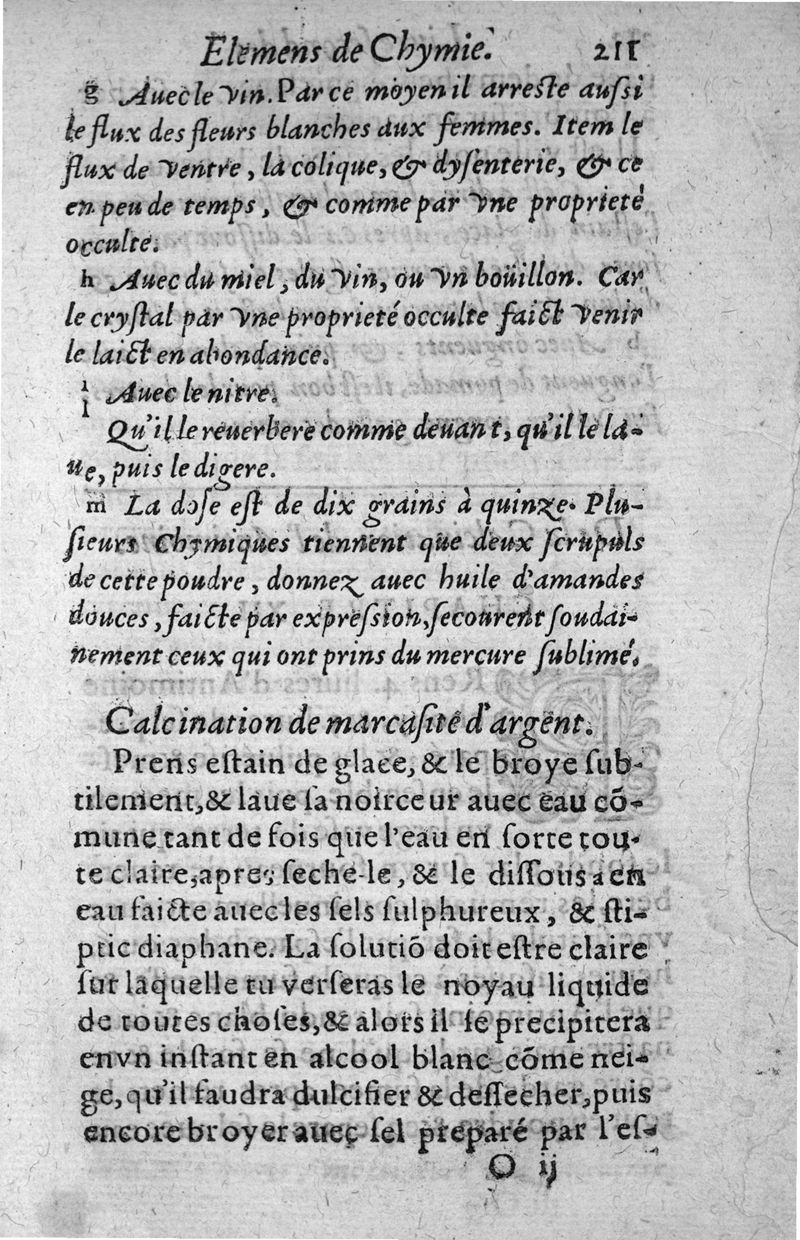 Elemens de Chymie. 211
g Auec le vin. Par ce moyen il arreste aussi
le flux des fleurs blanches aux femmes. Item le
flux de ventre, la colique, & dysenterie, & ce
en peu de temps, & comme par vne proprieté
occulte.
h Auec du miel, du vin, ou vn boüillon. Car
le crystal par vne proprieté occulte faict venir
le laict en abondance.
i Auec le nitre.
l Qu'il le reuerbere comme deuant, qu'il le la-
ue, puis le digere.
m La dose est de dix grains à quinze. Plu-
sieurs Chymiques tiennent que deux scrupuls
de cette poudre, donnez auec huile d'amandes
douces, faicte par expression, secourent soudai-
nement ceux qui ont prins du mercure sublimé.
Calcination de marcasite d'argent.
Prens estain de glace, & le broye sub-
tilement, & laue sa noirceur auec eau cõ-
mune tant de fois que l'eau en sorte tou-
te claire, apres seche-le, & le dissous a en
eau faicte auec les sels sulphureux, & sti-
ptic diaphane. La solutiõ doit estre claire
sur laquelle tu verseras le noyau liquide
de toutes choses, & alors il se precipitera
en vn instant en alcool blanc cõme nei-
ge, qu'il faudra dulcifier & dessecher, puis
encore broyer auec sel preparé par l'es-
O ij